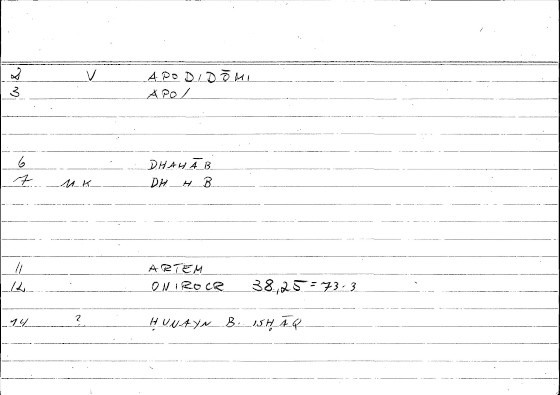 2 V APODIDŌMI
3 APO/
6 DHAHĀB
7 M.K DH H B
11 ARTEM
12 ONIROCR 38,25=73.3
14 ? ḤUNAYN B. ISḤĀQ